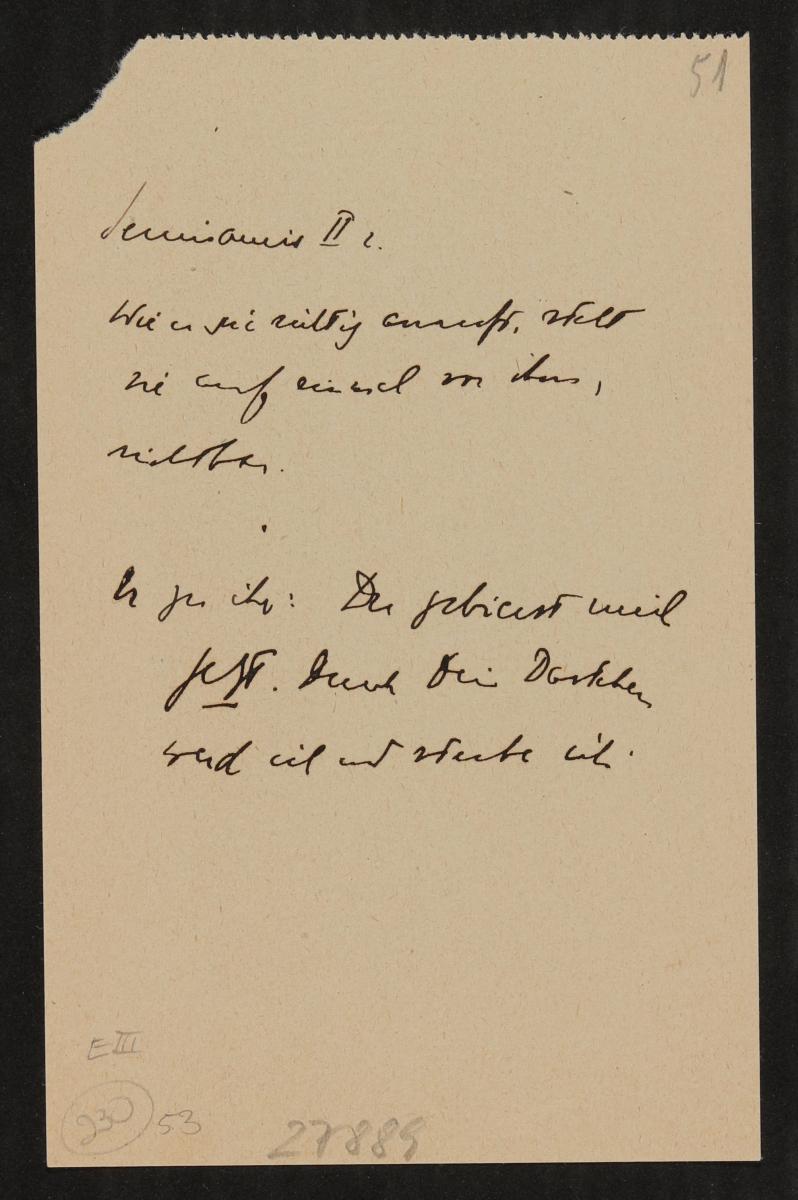 51
Semiramis II 2.
Wie er sie richtig anruft, steht
sie auf einmal vor ihm,
sichtbar.
Er zu ihr: Du gebierst mich
jetzt. Durch Dein Dastehen
werd ich und sterbe ich.
E III
230 53
27889